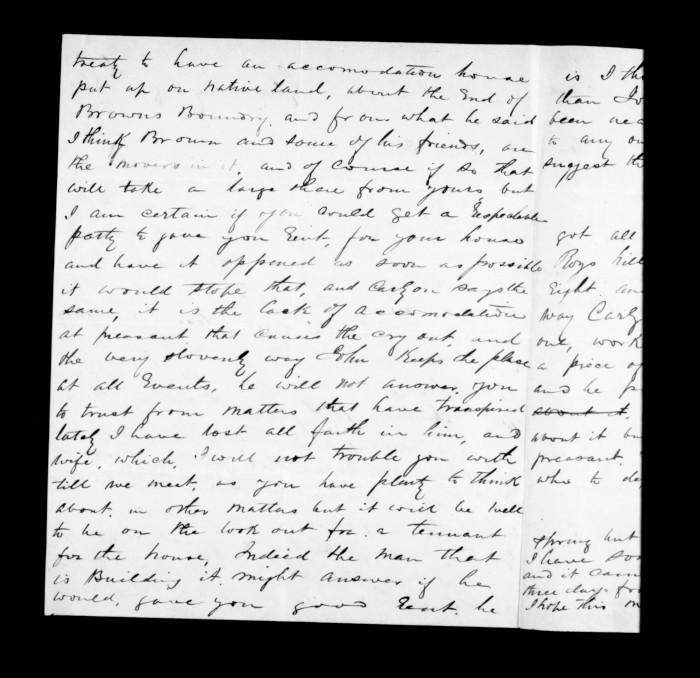 treaty to have an accomodation house
put up on native land, about the End of
Browns Boundry, and from what he said
I think Brown and some of his friends, are
the movers in it, and of Course if so that
will take a large share from yours but
I am certain if you could get a Respectable
party to gave you Rent, for your house
and have it oppened as soon as possible
it would stope that, and Carlyon says the
same, it is the lack of accomodation
at preasant that causes the cry out, and
the very slovenly way John Keeps the place
at all Events, he will not answer, you
to trust from matters that have transpired
lately I have lost all faith in him, and
wife, which, I will not trouble you with
till we meet, as you have plenty to think
about in other matters but it will be well
to be on the look out for a tennant
for the house, Indeed the man that
is Building it, might answer if he
would, gave you good Rent. he
is I th
than
been
to any
suggest th
got all
Roys hill
right an
way Carly
out, work
a piece of
and he
about it,
about it bu
preasant.
who to
Spring but
I have so
and it cam
three days fro
I hope this m